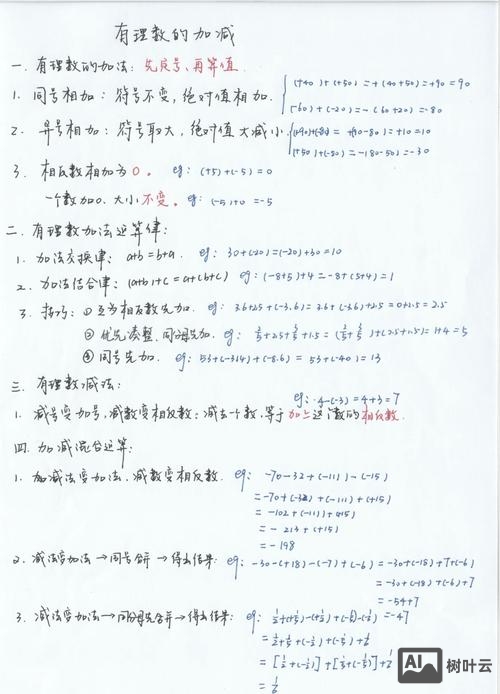 有理数的加减
一. 有理数的加法: 先定号、再算值
1. 同号相加: 符号不变, 绝对值相加. (+40)+(+50)=+(40+50)=+90=90
(-60)+(-20)=-(60+20)=-80
2. 异号相加: 符号取大, 绝对值大减小. (+90)+(-80)=+(90-80)=+10=10
(+50)+(-80)=-(80-50)=-30
3. 相反数相加为0. eg: (+5)+(-5)=0
一个数加0. 大小不变. eg: (-5)+0=-5
二. 有理数加法运算律:
1. 加法交换律: a+b=b+a. eg: 30+(-20)=(-20)+30=10
2. 加法结合律: (a+b)+c=a+(b+c) eg: (-8+5)+4=-8+(5+4)=1
3. 技巧: ① 互为相反数先加. eg: 3.6+2.5+(-3.6)=3.6+(-3.6)+2.5=0+2.5=2.5
② 优先凑整、同分母先加. eg:
④ 同号先加. eg: 53+(-31.4)+(-8.6)=53+(-40)=13
三. 有理数减法:
eg: 4-(-3)=4+3=7
1. 减号变加号, 减数变相反数: 减去一个数, 等于加上这个数的相反数.
四. 加减混合运算:
1. 加减法变加法, 减数变相反数. eg: -70-32+(-111)-(-15)
=-70+(-32)+(-111)+(+15)
=-102+(-111)+(+15)
=-213+(+15)
=-198
2. 减法变加法→同号合并→得出结果: eg: -30-(+18)-(-7)+(-6)=-30+(-18)+7+(-6)
=-30+(-18)+(-6)+7
=-54+7
3. 减法变加法→同分母先合并→得出结果: eg: =-47
AI 树叶云